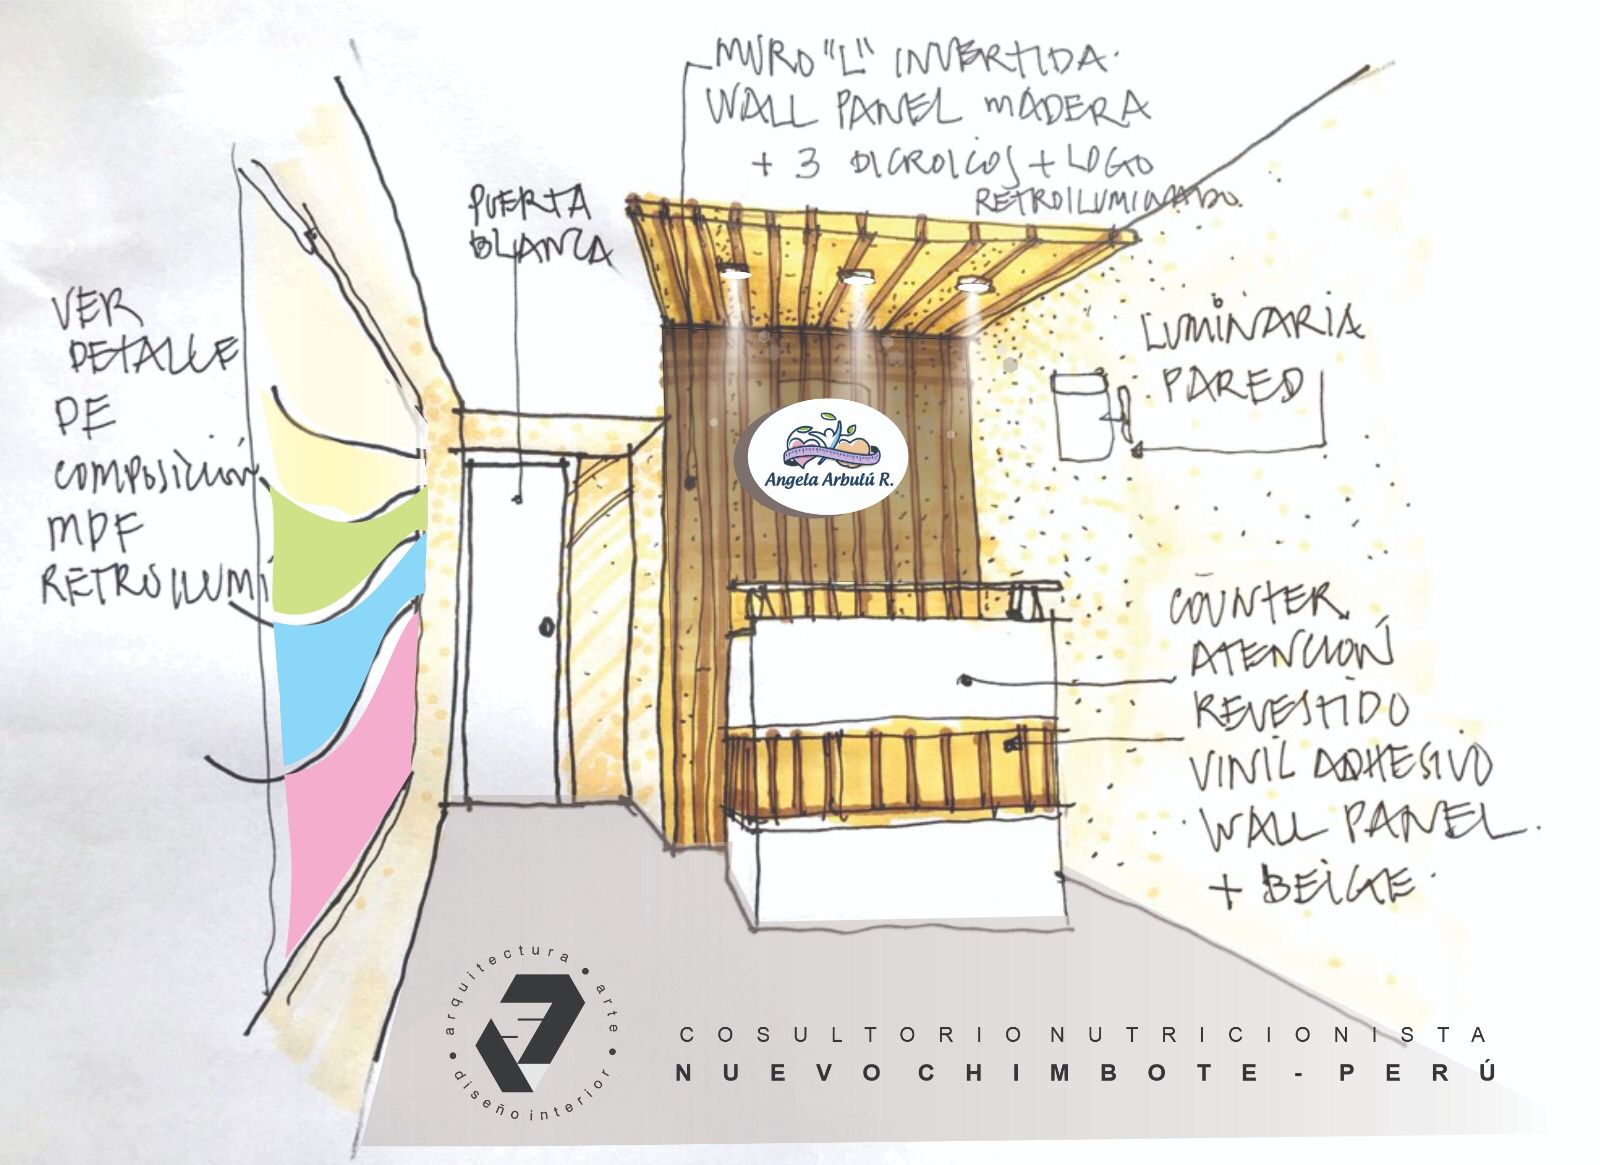 MURO "L" INVERTIDA.
WALL PANEL MADERA
+ 3 DICROICOS + LOGO
RETROILUMINADO.
PUERTA
BLANCA
VER
DETALLE
DE
COMPOSICIÓN
MDF
RETROILUMI
LUMINARIA
PARED
Angela Arbulú R.
COUNTER
ATENCIÓN
REVESTIDO
VINIL ADHESIVO
WALL PANEL.
+ BEIGE.
arquitectura • arte • diseño interior •
COSULTORIO NUTRICIONISTA
NUEVO CHIMBOTE - PERÚ